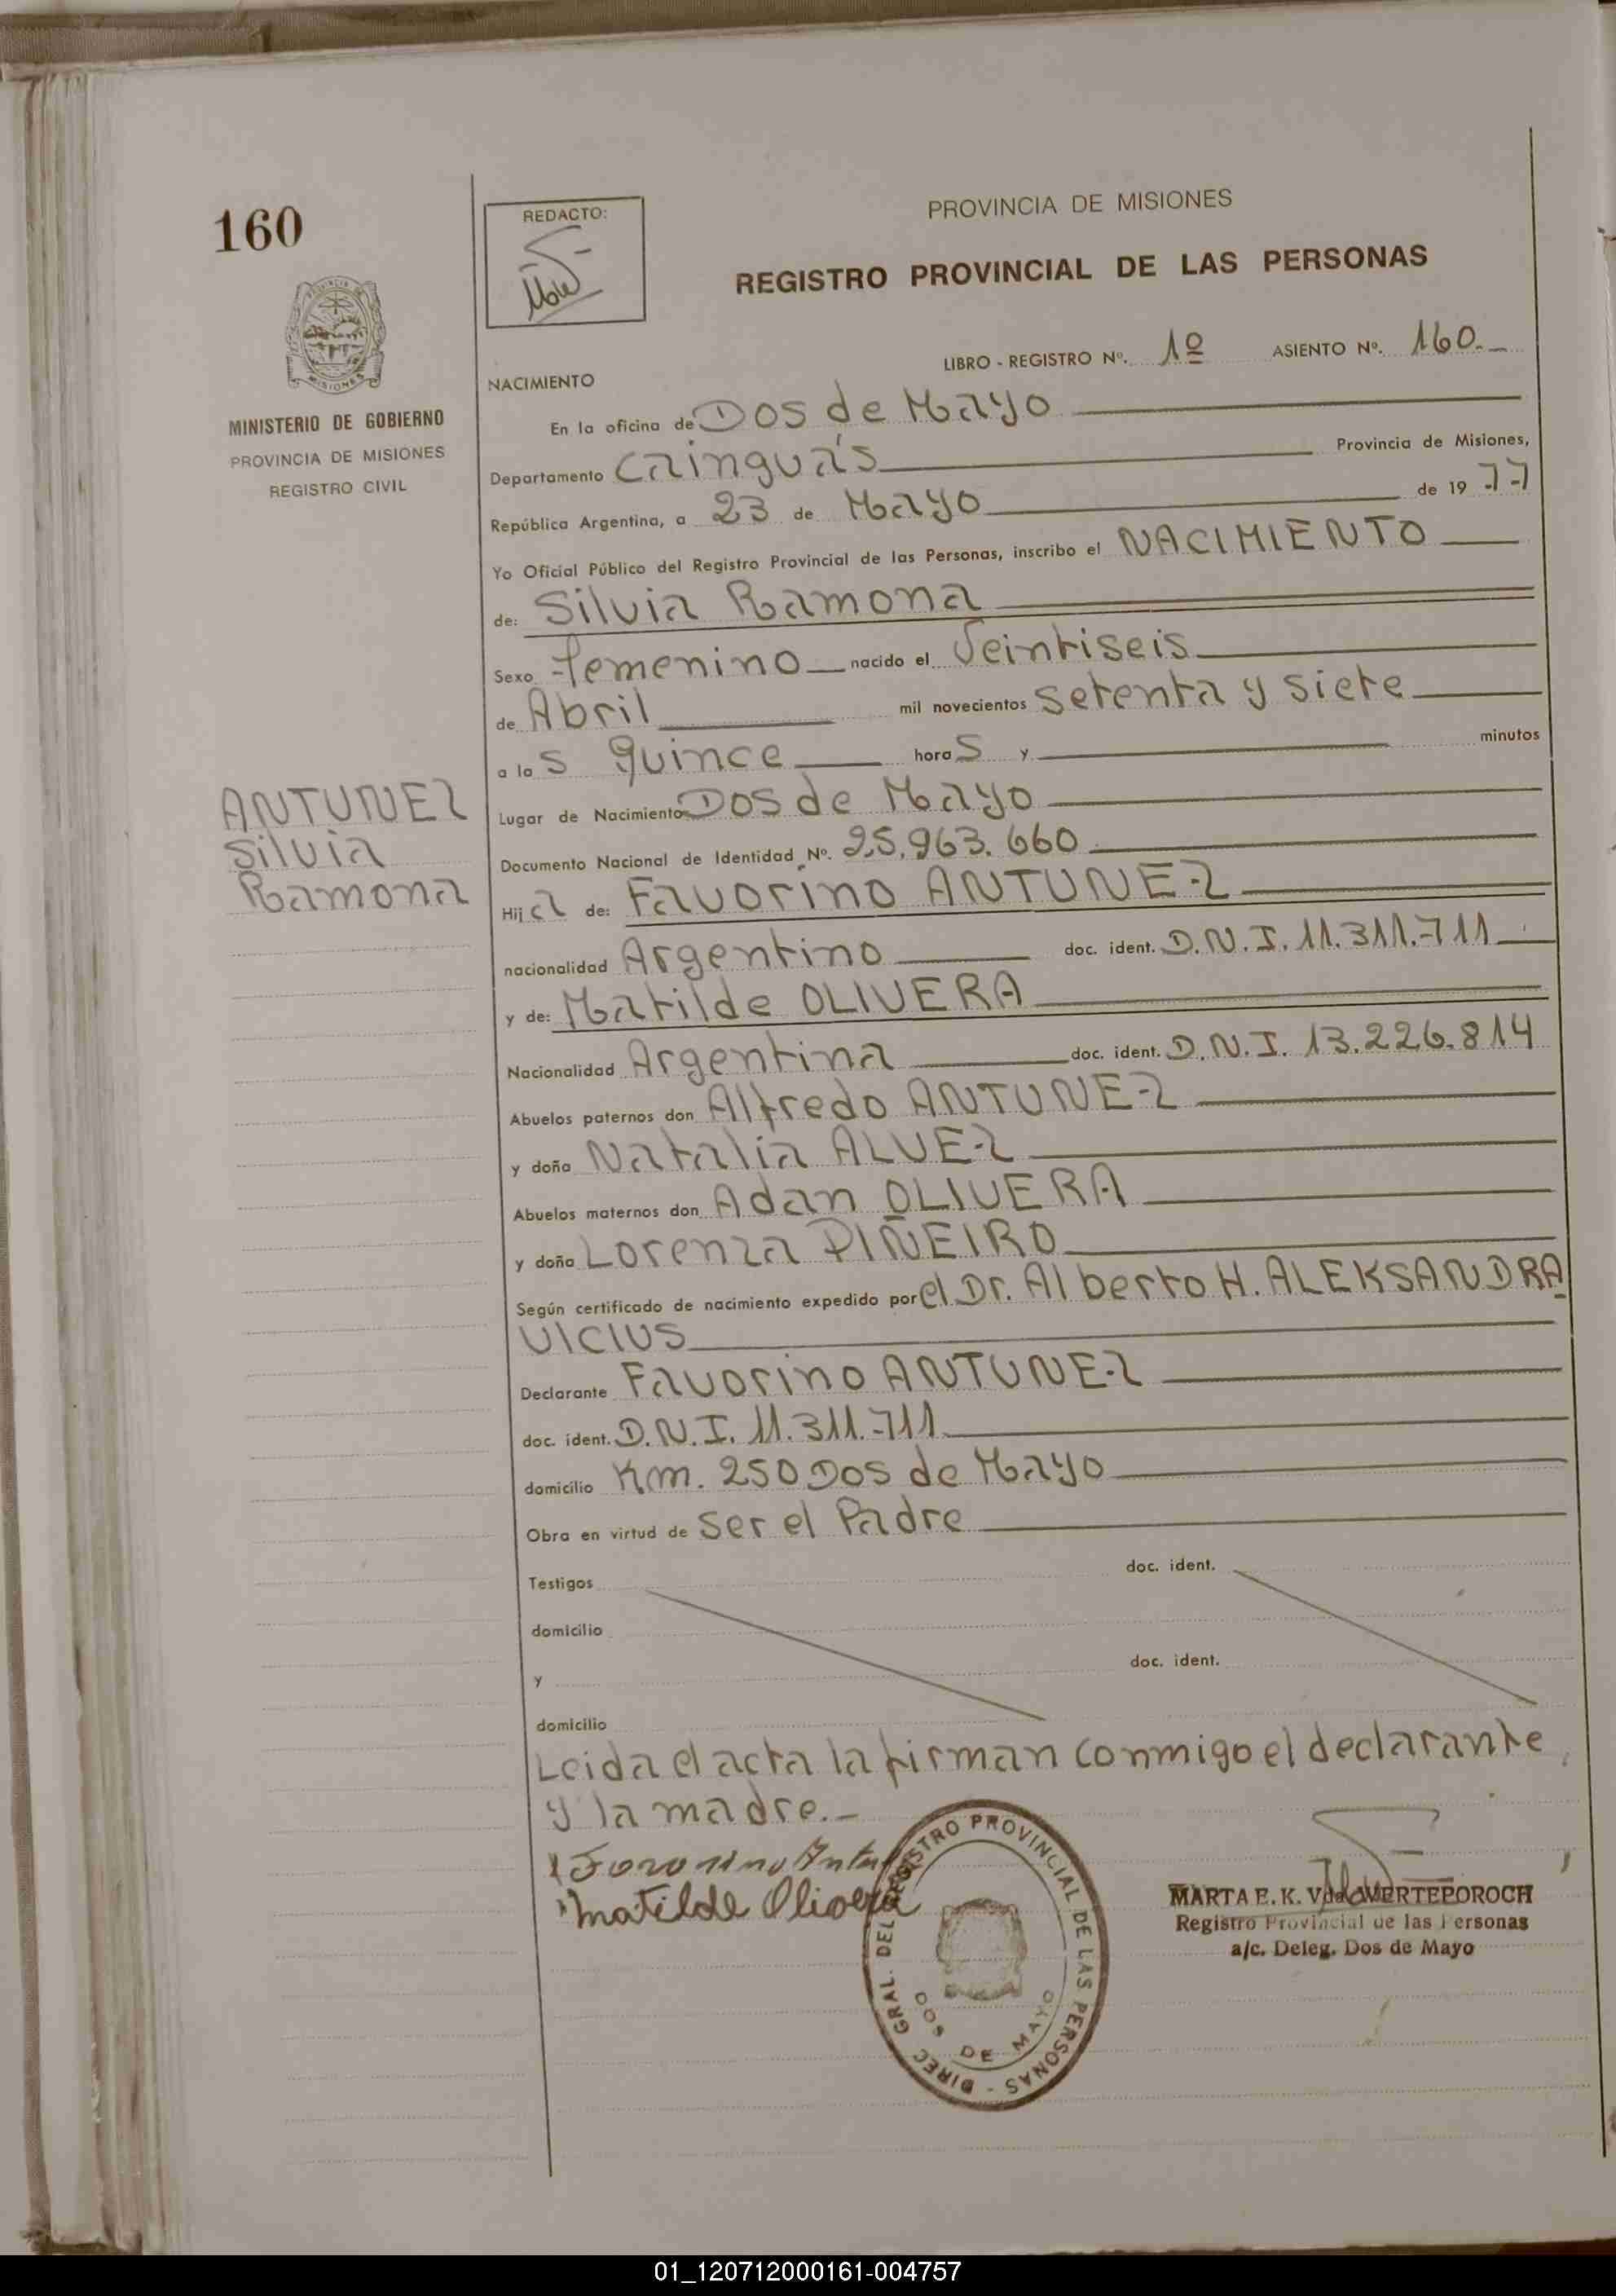 160
REDACTO:
PROVINCIA DE MISIONES
REGISTRO PROVINCIAL DE LAS PERSONAS
MISIONES
MINISTERIO DE GOBIERNO
PROVINCIA DE MISIONES
REGISTRO CIVIL
LIBRO - REGISTRO Nº. 1º ASIENTO Nº. 160.-
NACIMIENTO
En la oficina de Dos de Mayo
Departamento Cainguás Provincia de Misiones,
República Argentina, a 23 de Mayo de 19 77
Yo Oficial Público del Registro Provincial de las Personas, inscribo el NACIMIENTO
de: Silvia Ramona
Sexo femenino nacido el Veintiseis
de Abril mil novecientos setenta y siete
a las quince horas y minutos
ANTUNEZ
Silvia
Ramona
Lugar de Nacimiento Dos de Mayo
Documento Nacional de Identidad Nº. 25.963.660
Hija de: Favorino ANTUNEZ
nacionalidad Argentino doc. ident. D.N.I. 11.311.711
y de: Matilde OLIVERA
Nacionalidad Argentina doc. ident. D.N.I. 13.226.814
Abuelos paternos don Alfredo ANTUNEZ
y doña Natalia ALVEZ
Abuelos maternos don Adan OLIVERA
y doña Lorenza PIÑEIRO
Según certificado de nacimiento expedido por el Dr. Alberto H. ALEKSANDRA
VICIUS
Declarante Favorino ANTUNEZ
doc. ident. D.N.I. 11.311.711
domicilio Km. 250 Dos de Mayo
Obra en virtud de ser el Padre
Testigos doc. ident.
domicilio
y doc. ident.
domicilio
Leida el acta la firman conmigo el declarante
y la madre.-
Matilde Olivera
DIREC. GRAL. DEL REGISTRO PROVINCIAL DE LAS PERSONAS -
DOS DE MAYO
MARTA E. K. Vda. WERTEPOROCH
Registro Provincial de las Personas
a/c. Deleg. Dos de Mayo
01_120712000161-004757